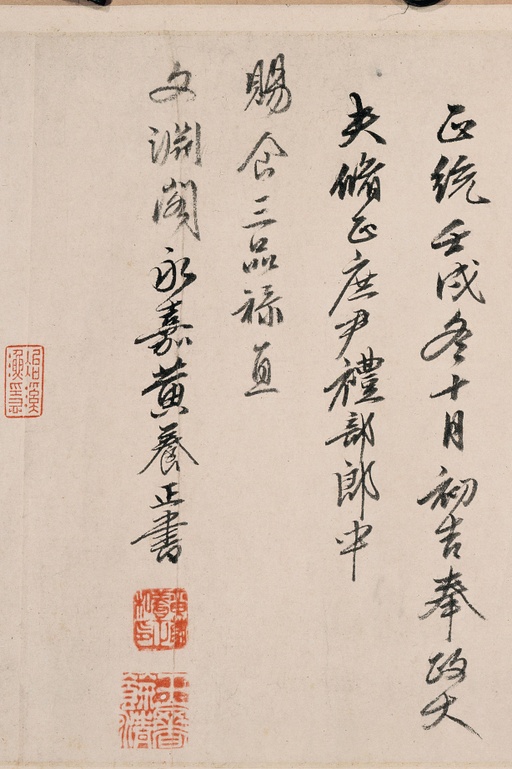 正統壬戌冬十月初吉奉政大
夫脩正庶尹禮部郎中
賜食三品祿直
文淵閣永嘉黃養正書